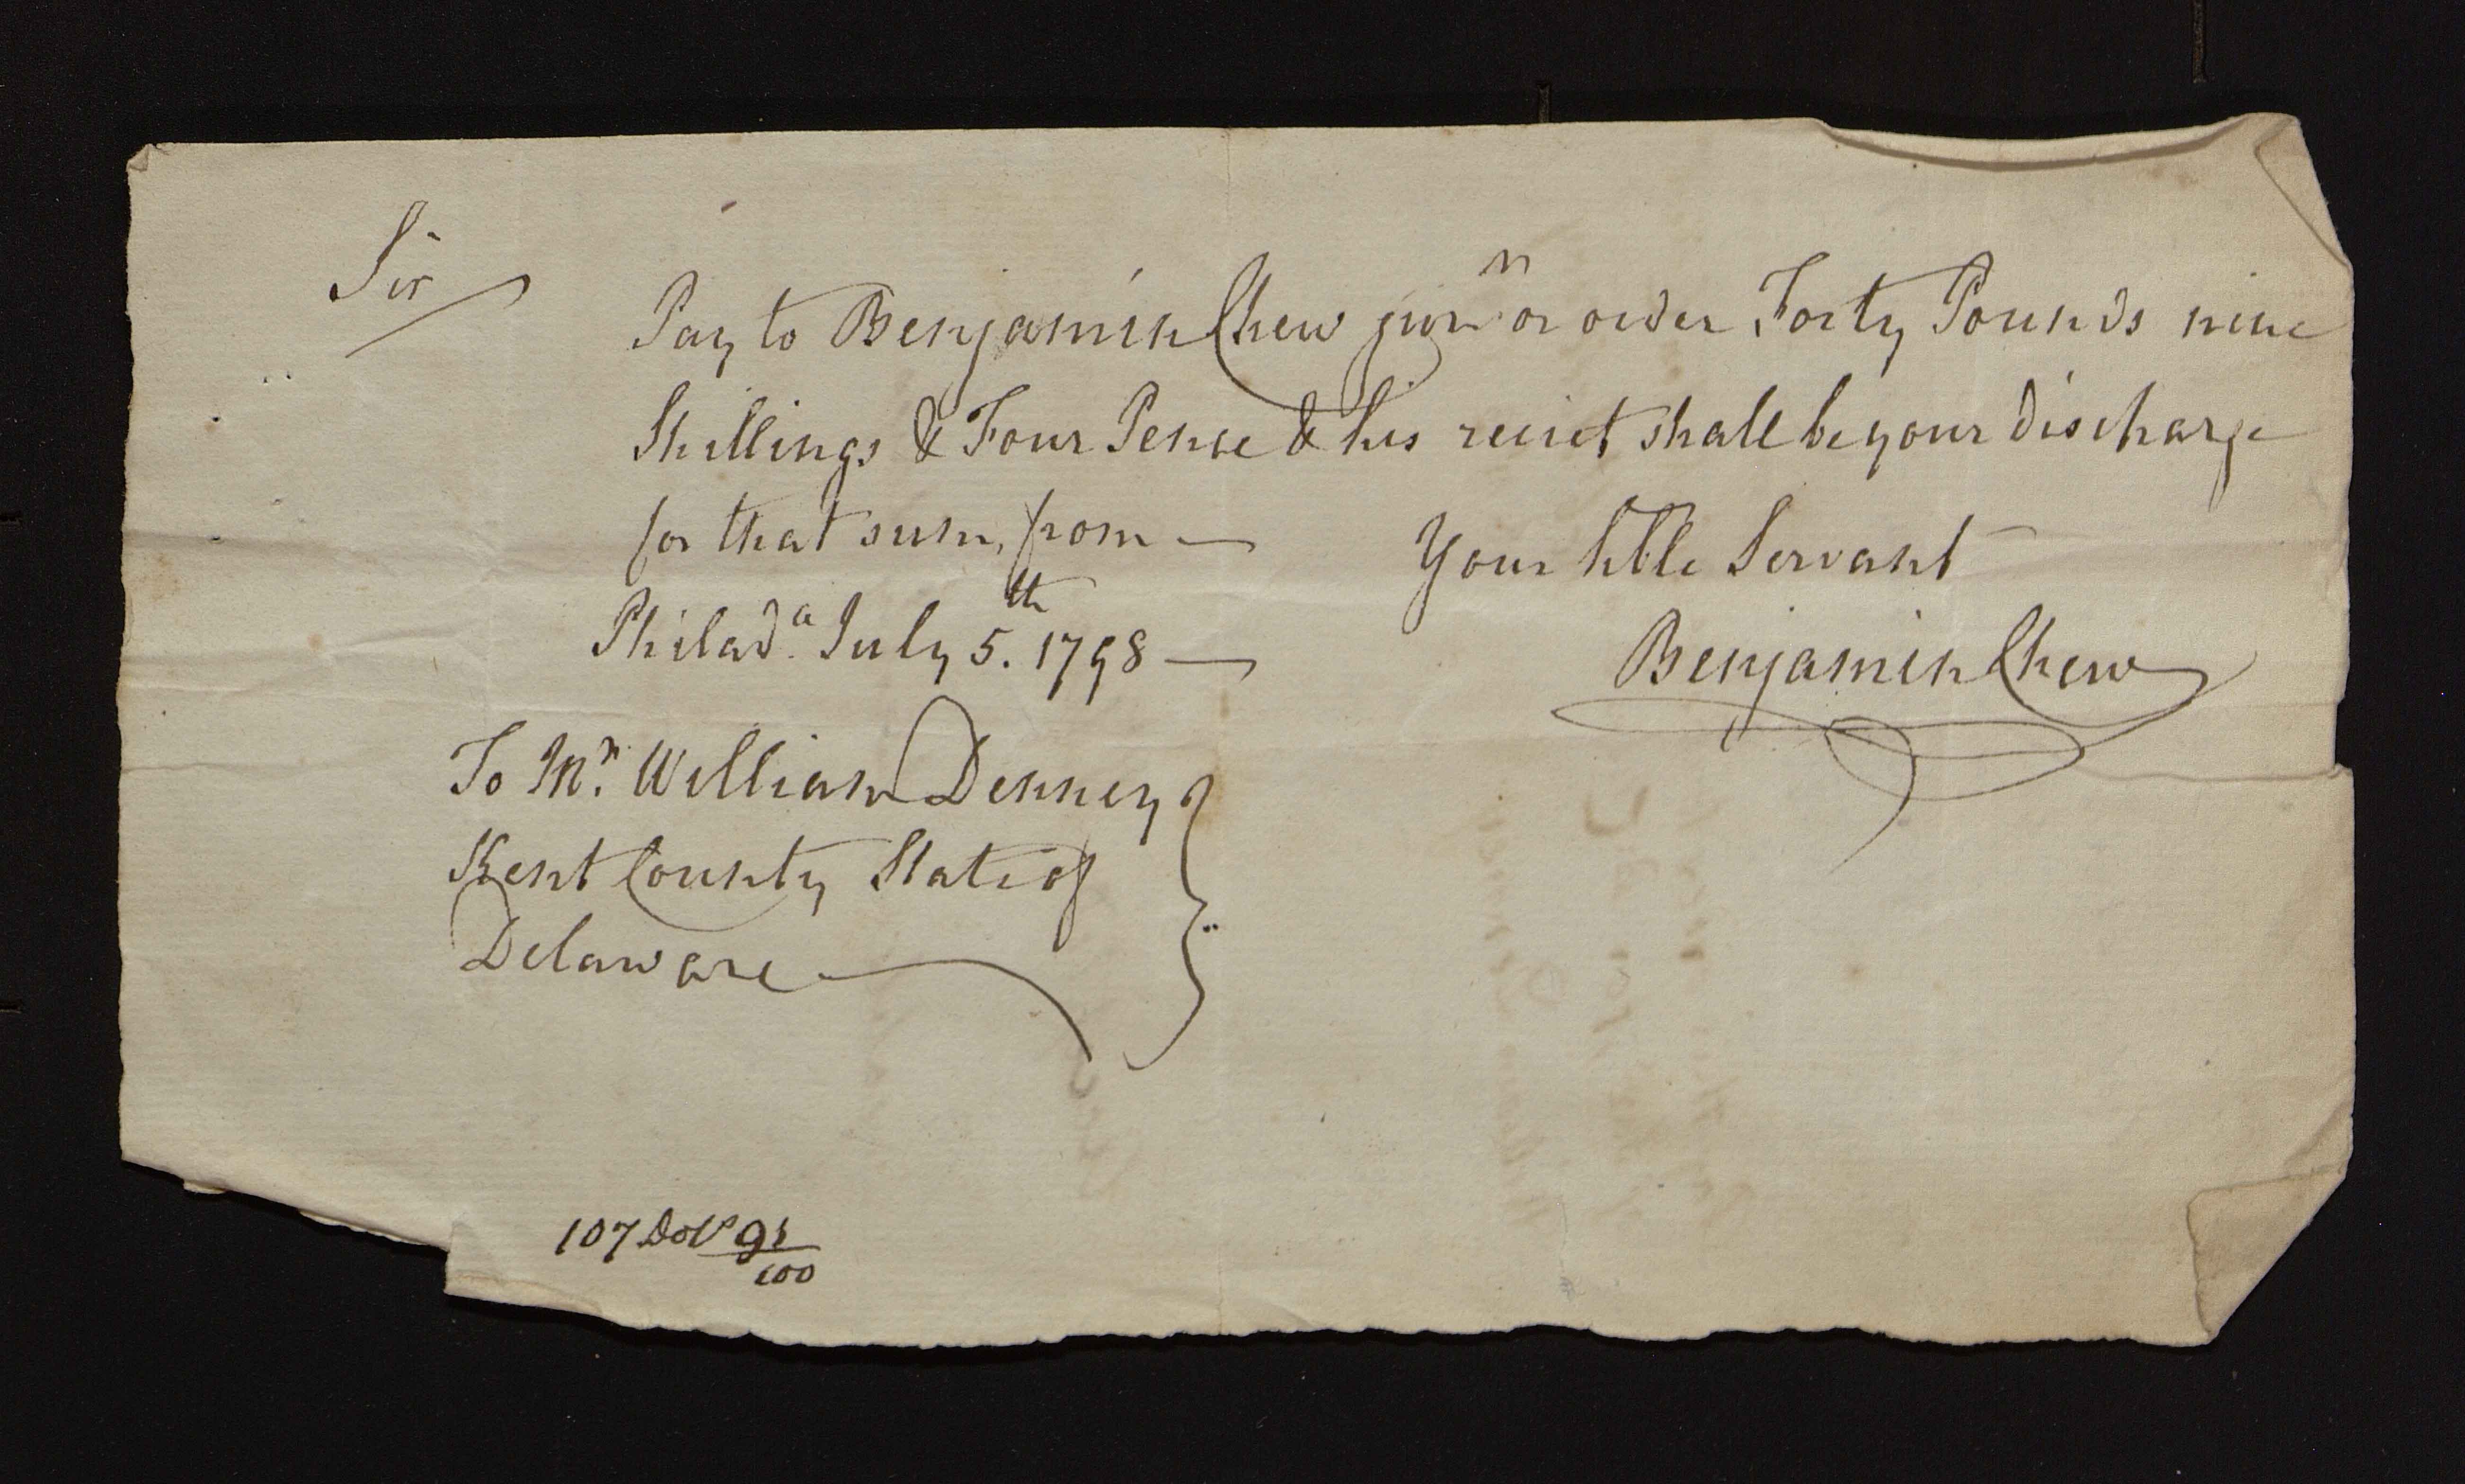 Sir
Pay to Benjamin Chew junr or order Forty Pounds nine
Shillings & Four Pence & his reciet shall be your discharge
for that sum, from —
Your hble Servant
Philada. July 5th. 1798 —
Benjamin Chew
To Mr. William Denney
Kent County State of
Delaware
107 Dols 91/100